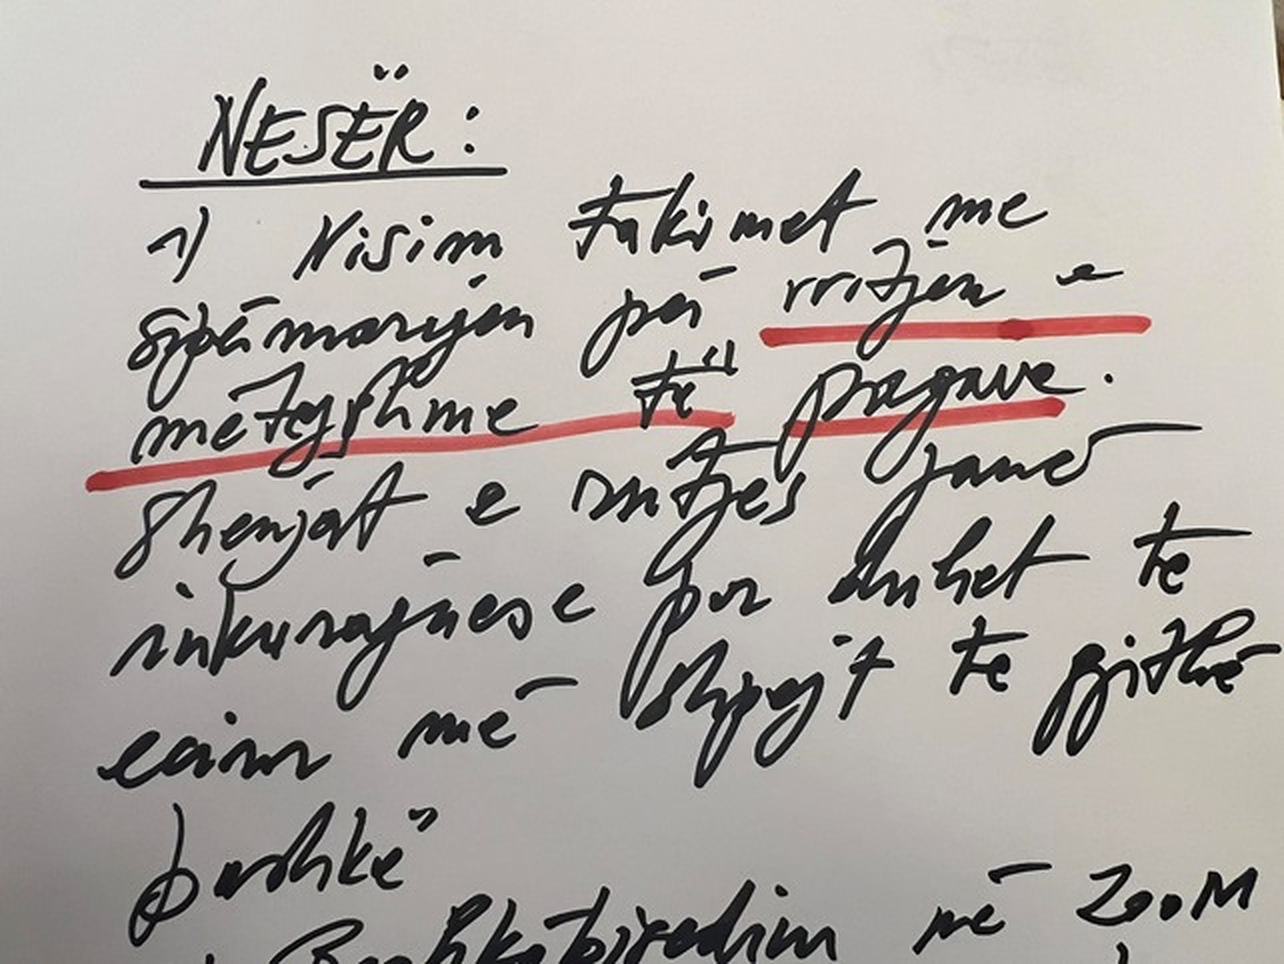 NESËR:
1) Nisim takimet me
sipërmarrjen për rritjen e
mëtejshme të pagave.
Shenjat e rritjes janë
inkurajuese por duhet te
ecim më shpejt te gjithë
bashkë
Bashkëbisedim në ZOOM